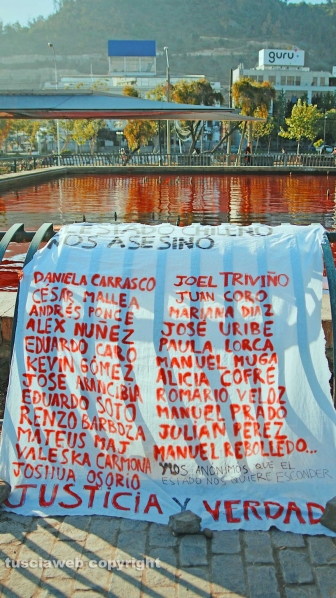 guru
EL ESTADO CHILENO
NOS ASESINO
DANIELA CARRASCO
CÉSAR MALLEA
ANDRÉS PONCE
ALEX NUÑEZ
EDUARDO CARO
KEVIN GÓMEZ
JOSÉ ARANCIBIA
EDUARDO SOTO
RENZO BARBOZA
MATEUS MAJ
VALESKA CARMONA
JOSHUA OSORIO
JOEL TRIVIÑO
JUAN CORO
MARIANA DÍAZ
JOSÉ URIBE
PAULA LORCA
MANUEL MUGA
ALICIA COFRÉ
ROMARIO VELOZ
MANUEL PRADO
JULIÁN PÉREZ
MANUEL REBOLLEDO...
Y LOS ANONIMOS QUE EL
ESTADO NOS QUIERE ESCONDER
JUSTICIA Y VERDAD
tusciaweb copyright